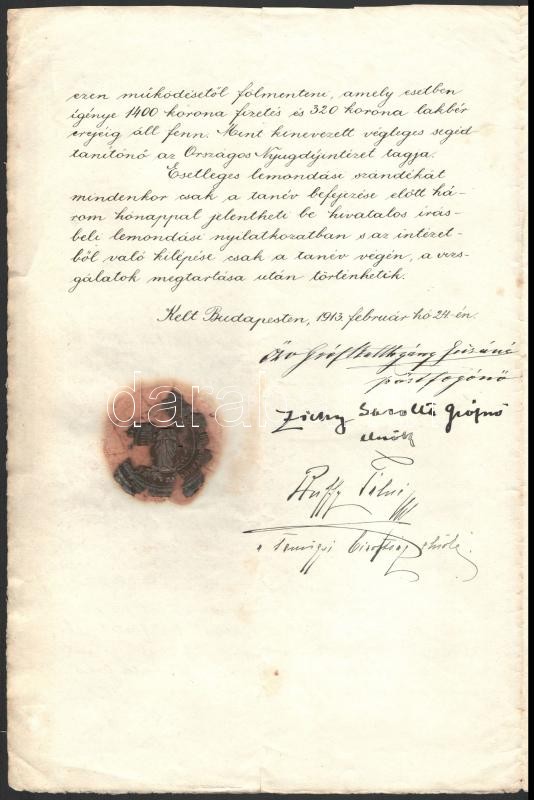 ezen működésétől fölmenteni, amely esetben
igénye 1400 korona fizetés és 320 korona lakbér
erejéig áll fenn. Mint kinevezett végleges segéd
tanítónő az Országos Nyugdíjintézet tagja.
Esetleges lemondási szándékát
mindenkor csak a tanév befejezése előtt há-
rom hónappal jelentheti be hivatalos irás-
beli lemondási nyilatkozatban s az intézet-
ből való kilépése csak a tanév végén, a vizs-
gálatok megtartása után történhetik.
Kelt Budapesten, 1913. február hó 24-én.
özv Gróf
Zichy Sarolta Grófnő
elnök
darabanth
a